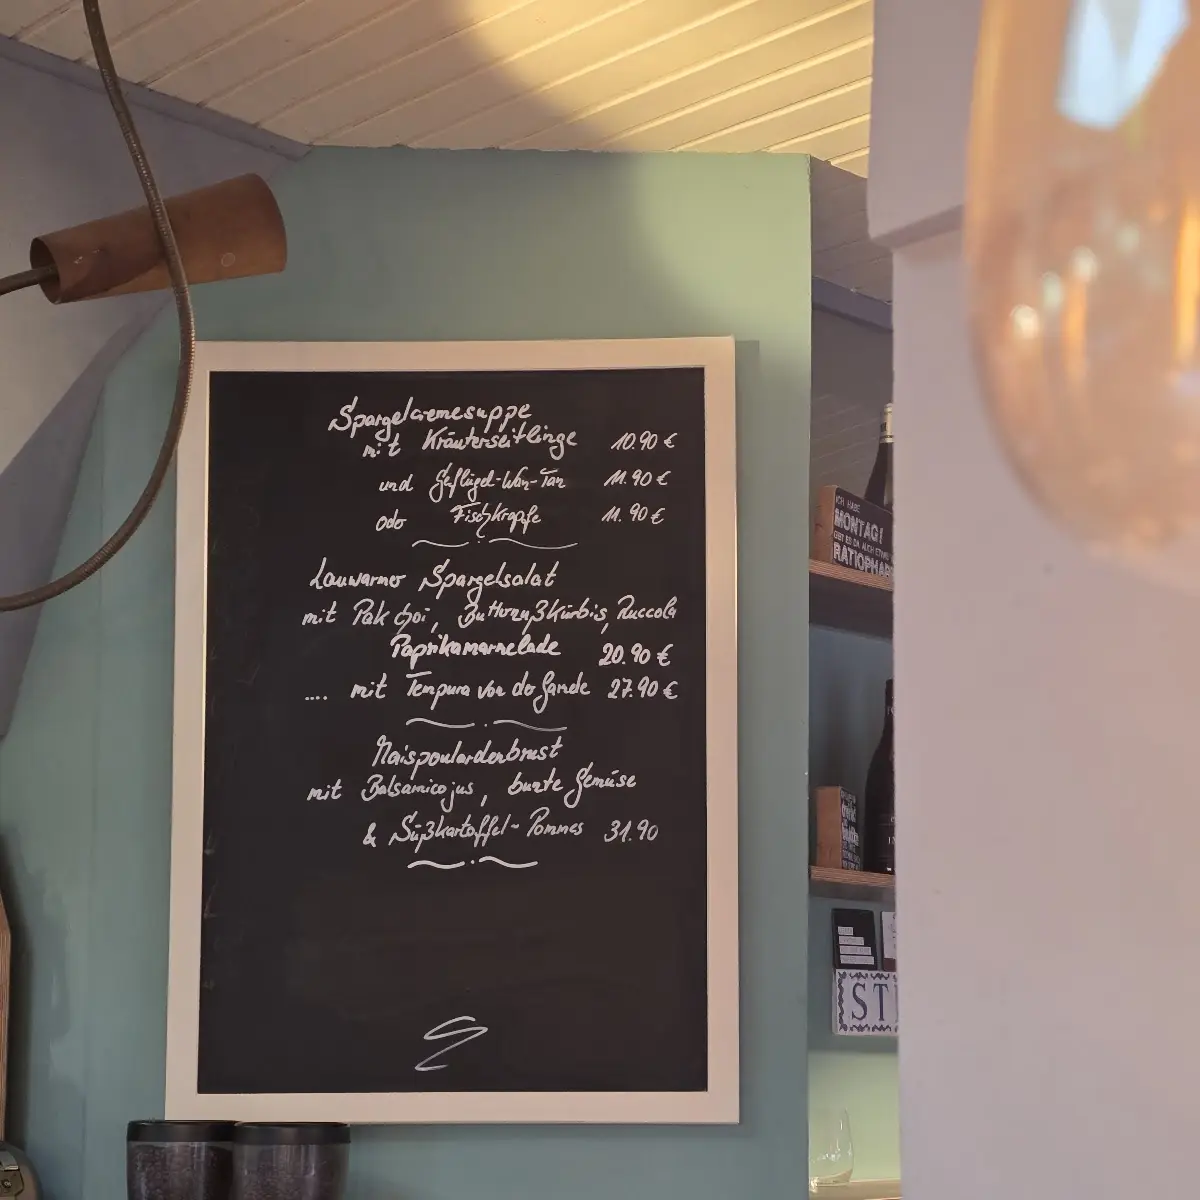 Spargelcremesuppe
mit Kräuterseitlinge 10.90 €
und Geflügel-Wan-Tan 11.90 €
oder Fischkrapfe 11.90 €
Lauwarmer Spargelsalat
mit Pak choi, Butternußkürbis, Ruccola
Paprikamarmelade 20.90 €
.... mit Tempura von der Garnele 27.90 €
Maispoulardenbrust
mit Balsamicojus, bunte Gemüse
& Süßkartoffel-Pommes 31.90
ICH HABE
MONTAG!
GIBT ES DA AUCH ETWAS
RATIOPHAR
ST